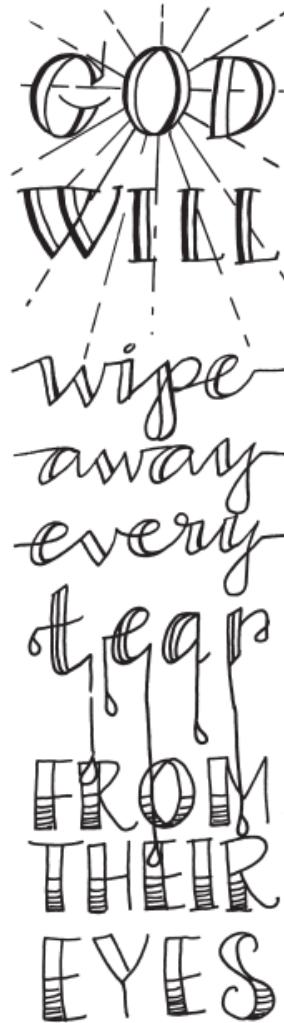 GOD
WILL
wipe
away
every
tear
FROM
THEIR
EYES